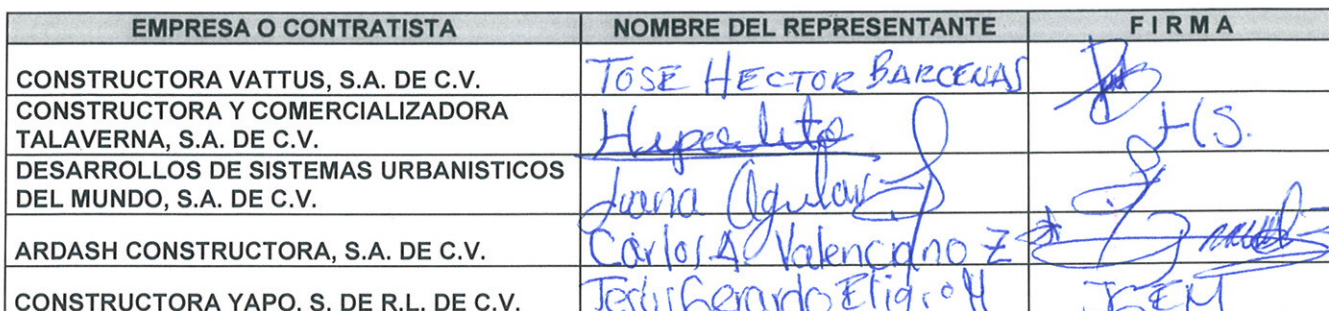 EMPRESA O CONTRATISTA NOMBRE DEL REPRESENTANTE FIRMA
CONSTRUCTORA VATTUS, S.A. DE C.V. JOSE HECTOR BARCENAS
CONSTRUCTORA Y COMERCIALIZADORA
TALAVERNA, S.A. DE C.V. Hipolito HS.
DESARROLLOS DE SISTEMAS URBANISTICOS
DEL MUNDO, S.A. DE C.V. Juana Aguilar
ARDASH CONSTRUCTORA, S.A. DE C.V. Carlos A. Valenciano Z
CONSTRUCTORA YAPO, S. DE R.L. DE C.V. Jesus Gerardo Eligio M JGEM